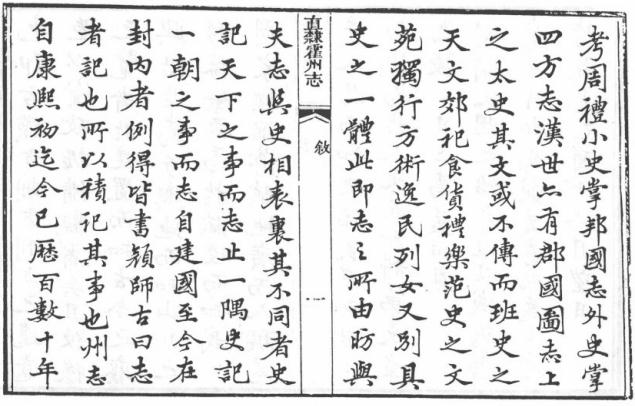 考周禮小史掌邦國志外史掌
四方志漢世亦有郡國圖志上
之太史其文或不傳而班史之
天文郊祀食貨禮樂范史之文
苑獨行方術逸民列女又別具
史之一體此即志之所由昉與
直隸霍州志
敘
一
夫志與史相表裏其不同者史
記天下之事而志止一隅史記
一朝之事而志自建國至今在
封內者例得皆書顏師古曰志
者記也所以積記其事也州志
自康熙初迄今已歷百數十年